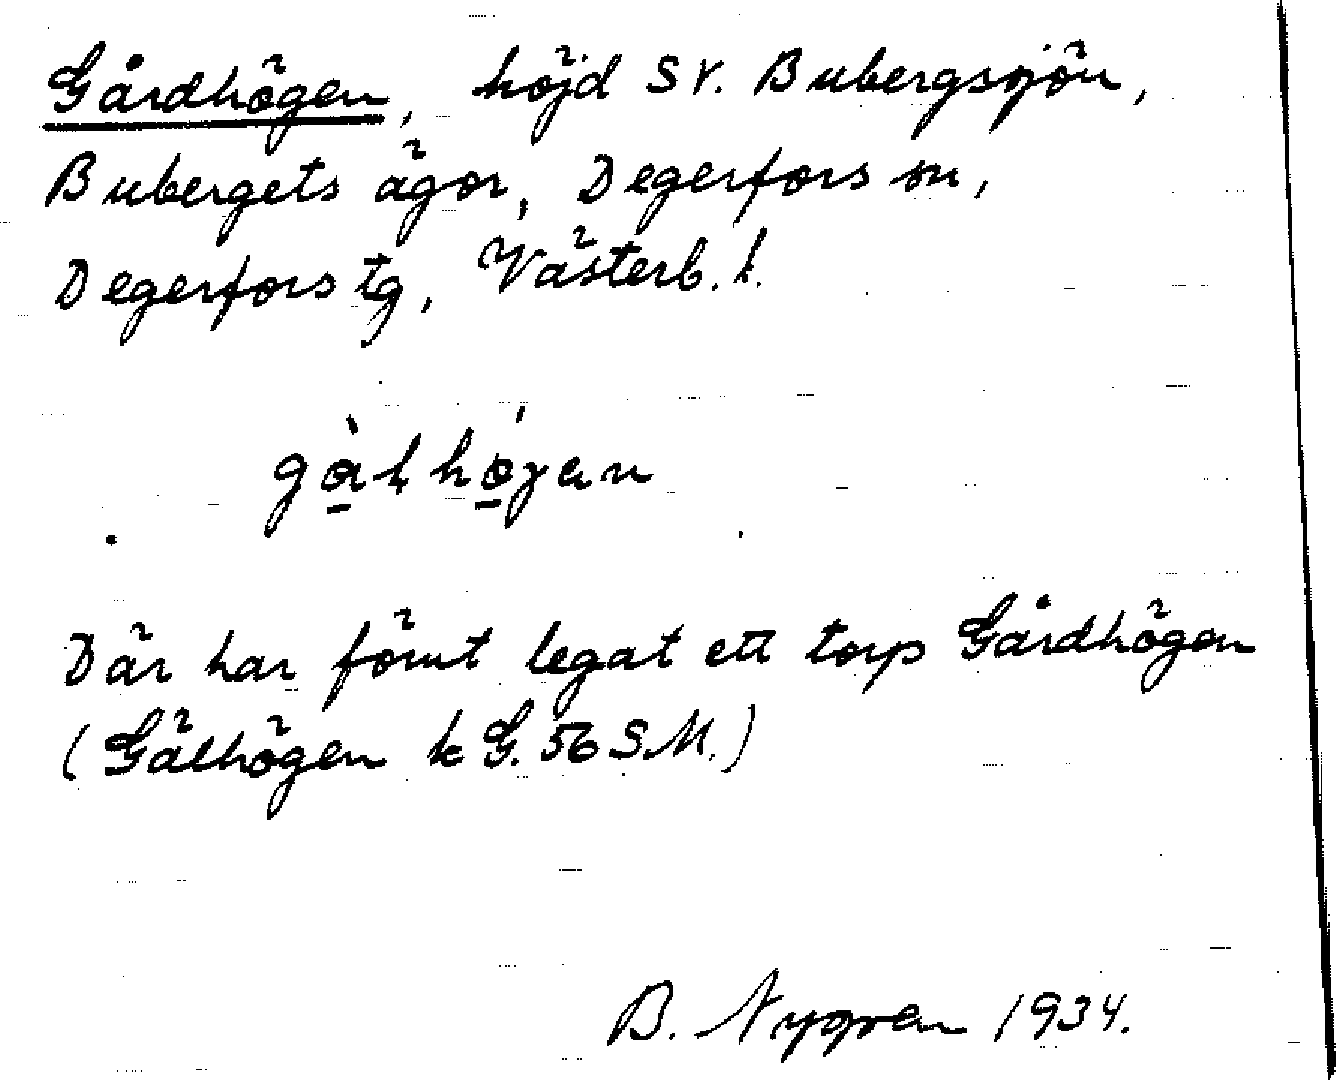 Gårdhögen, höjd SV. Bubergssjön,
Bubergets ägor, Degerfors sn,
Degerfors tg, Västerb. l.
Där har förut legat ett torp Gårdhögen
(Gålhögen k G. 56 S.M.)
B. Nygren 1934.